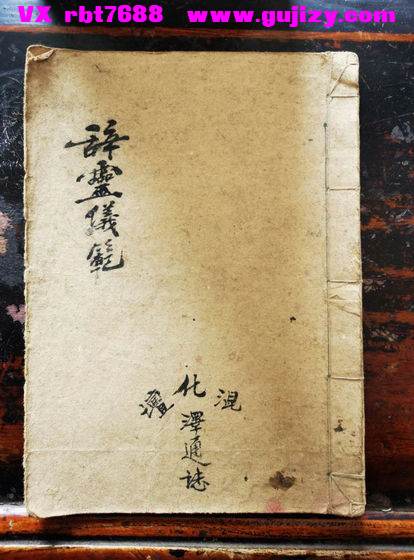 VX rbt7688 www.gujizy.com
辞靈儀範
化澤通誌